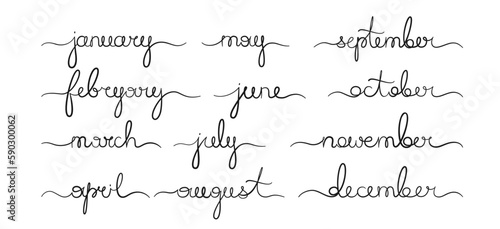 january may september
februyary june october
march july november
april auegust december
Adobe Stock | #590300062